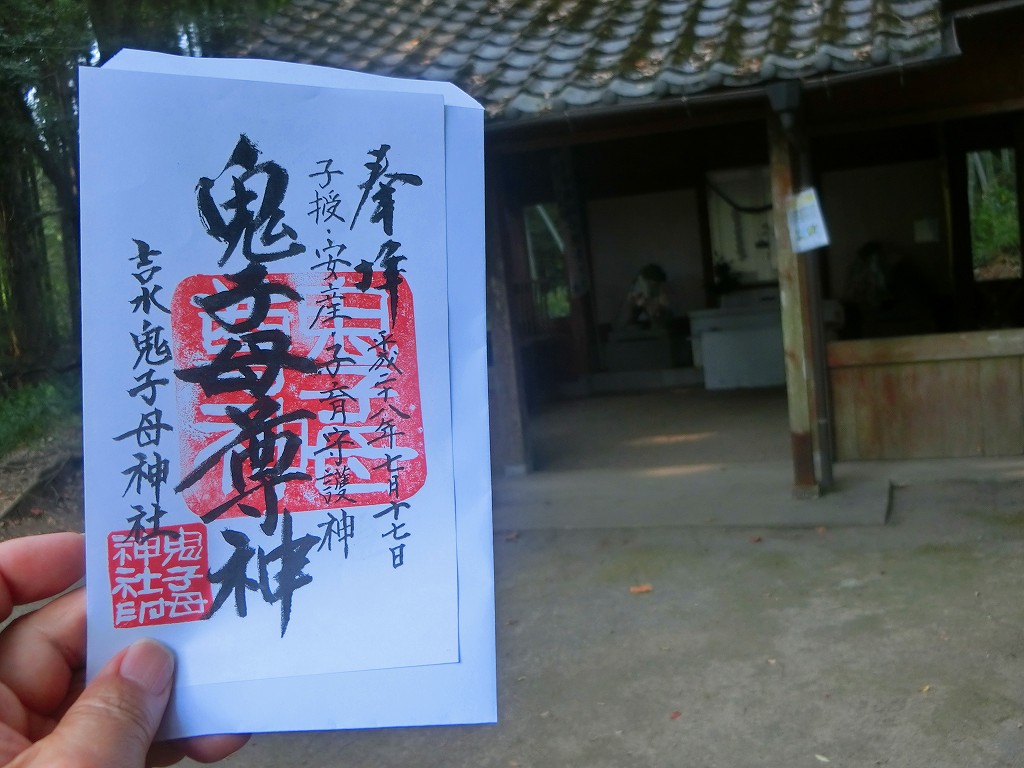 奉拝
平成二十八年七月十七日
子授・安産・子育守護神
鬼子母尊神
吉水鬼子母神社
鬼子母
神社印